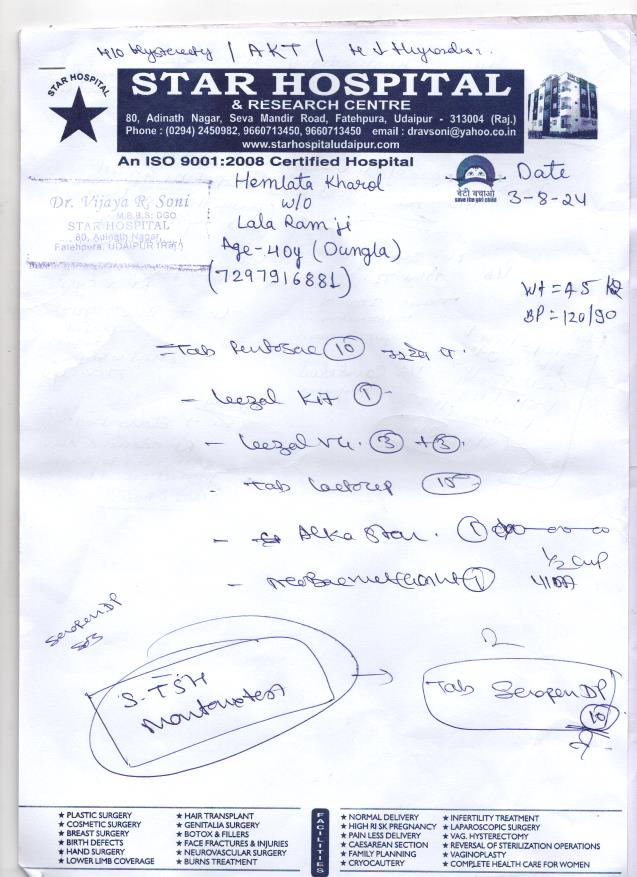 H/O Hysterectomy / AKT /
STAR HOSPITAL
STAR HOSPITAL
& RESEARCH CENTRE
80, Adinath Nagar, Seva Mandir Road, Fatehpura, Udaipur - 313004 (Raj.)
Phone : (0294) 2450982, 9660713450, 9660713450 email : dravsoni@yahoo.co.in
www.starhospitaludaipur.com
An ISO 9001:2008 Certified Hospital
बेटी बचाओ
save the girl child
Date
3-8-24
Dr. Vijaya R. Soni
M.B.B.S. DGO
STAR HOSPITAL
80, Adinath Nagar,
Fatehpura, UDAIPUR (Raj.)
Hemlata Kharol
W/O
Lala Ram ji
Age-40y (Dungla)
(7297916881)
Wt = 45 Kg
BP = 120/90
= Tab 10
- Kit 1
- 3 + 3
- Tab 15
- Alka Star. 1
1/2 cup
- 1
Seropen DP
S. TSH
Montoux test
Tab Seropen DP
10
★ PLASTIC SURGERY
★ COSMETIC SURGERY
★ BREAST SURGERY
★ BIRTH DEFECTS
★ HAND SURGERY
★ LOWER LIMB COVERAGE
★ HAIR TRANSPLANT
★ GENITALIA SURGERY
★ BOTOX & FILLERS
★ FACE FRACTURES & INJURIES
★ NEUROVASCULAR SURGERY
★ BURNS TREATMENT
FACILITIES
★ NORMAL DELIVERY
★ HIGH RISK PREGNANCY
★ PAIN LESS DELIVERY
★ CAESAREAN SECTION
★ FAMILY PLANNING
★ CRYOCAUTERY
★ INFERTILITY TREATMENT
★ LAPAROSCOPIC SURGERY
★ VAG. HYSTRECTOMY
★ REVERSAL OF STERILIZATION OPERATIONS
★ VAGINOPLASTY
★ COMPLETE HEALTH CARE FOR WOMEN